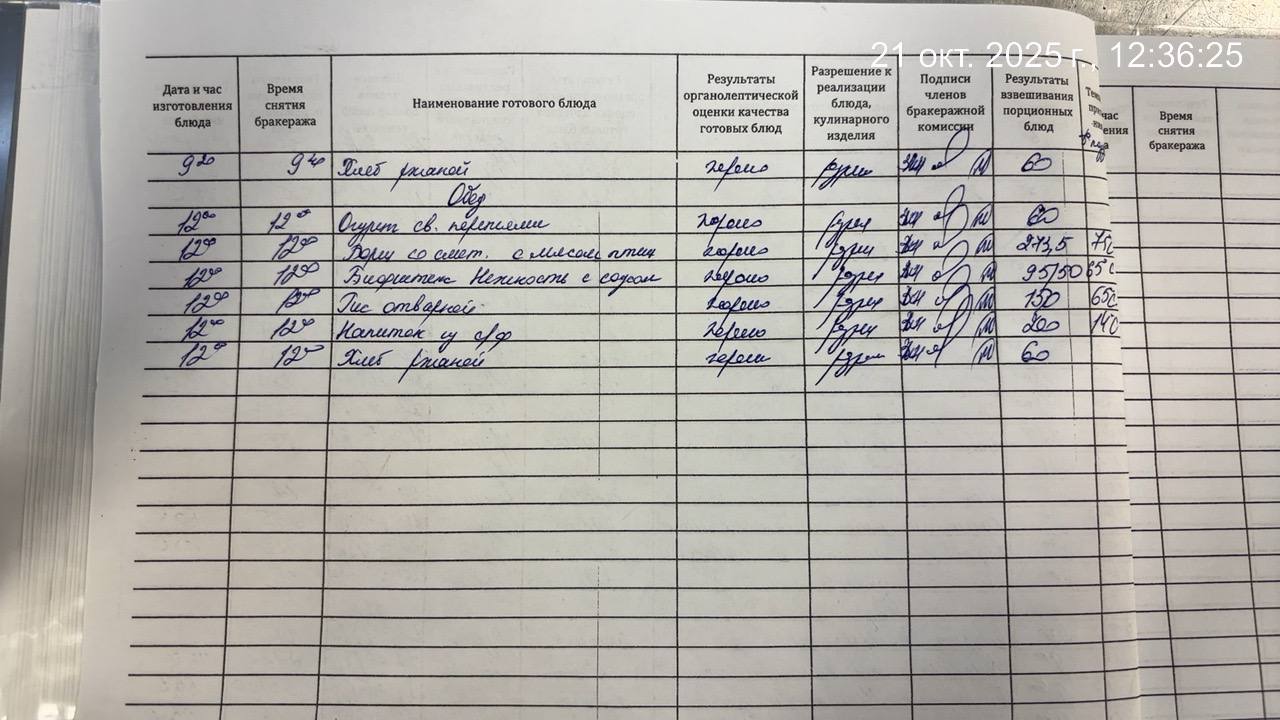 21 окт. 2025 г., 12:36:25
Дата и час изготовления блюда
Время снятия бракеража
Наименование готового блюда
Результаты органолептической оценки качества готовых блюд
Разрешение к реализации блюда, кулинарного изделия
Подписи членов бракеражной комиссии
Результаты взвешивания порционных блюд
Время снятия бракеража
9 20 9 40 Хлеб ржаной хорошо разреш 60
Обед
12 00 12 00 Огурцы св. порциями хорошо разреш 60
12 00 12 00 Борщ со смет. с мясом птиц хорошо разреш 273,5 75С
12 00 12 00 Бифштекс Нежность с соусом хорошо разреш 95/50 65С
12 00 12 00 Рис отварной хорошо разреш 150 65С
12 00 12 00 Напиток из с/ф хорошо разреш 200 14С
12 00 12 00 Хлеб ржаной хорошо разреш 60